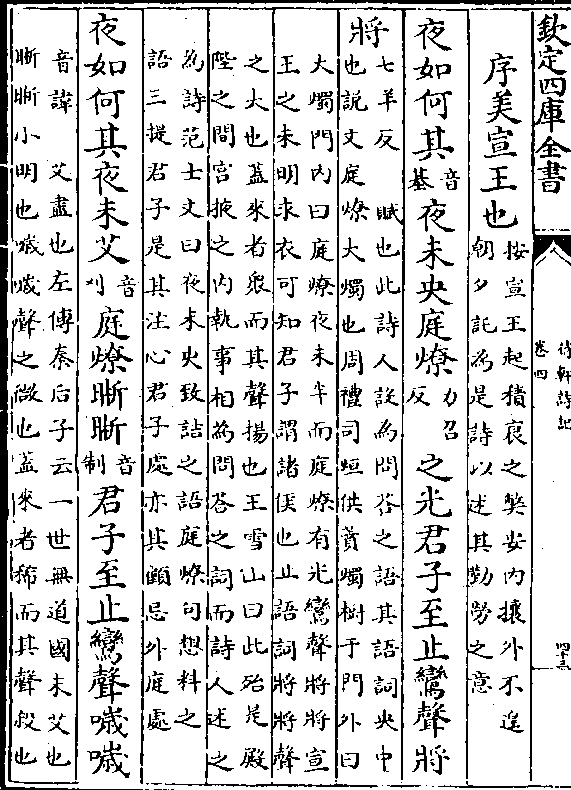 欽定四庫全書
待軒詩記
卷四
四十三
序美宣王也
按宣王起積衰之獘安内攘外不遑
朝夕託為是詩以述其勤勞之意
夜如何其
音
基
夜未央庭燎
力召
反
之光君子至止鸞聲將
將
七羊反 賦也此詩人設為問荅之語其語詞央中
也説文庭燎大燭也周禮司烜供蕡燭樹于門外曰
大燭門内曰庭燎夜未半而庭燎有光鸞聲將將宣
王之未明求衣可知君子謂諸侯也止語詞將將聲
之大也蓋來者衆而其聲揚也王雪山曰此殆是殿
陛之間宮掖之内執事相為問荅之詞而詩人述之
為詩范士文曰夜未央致詰之語庭燎句想料之
語三提君子是其注心君子處亦其顧忌外庭處
夜如何其夜未艾
音
刈
庭燎晣晣
音
制
君子至止鸞聲噦噦
音諱 艾盡也左傳秦后子云一世無道國未艾也
晣晣小明也噦噦聲之微也蓋來者稀而其聲殺也